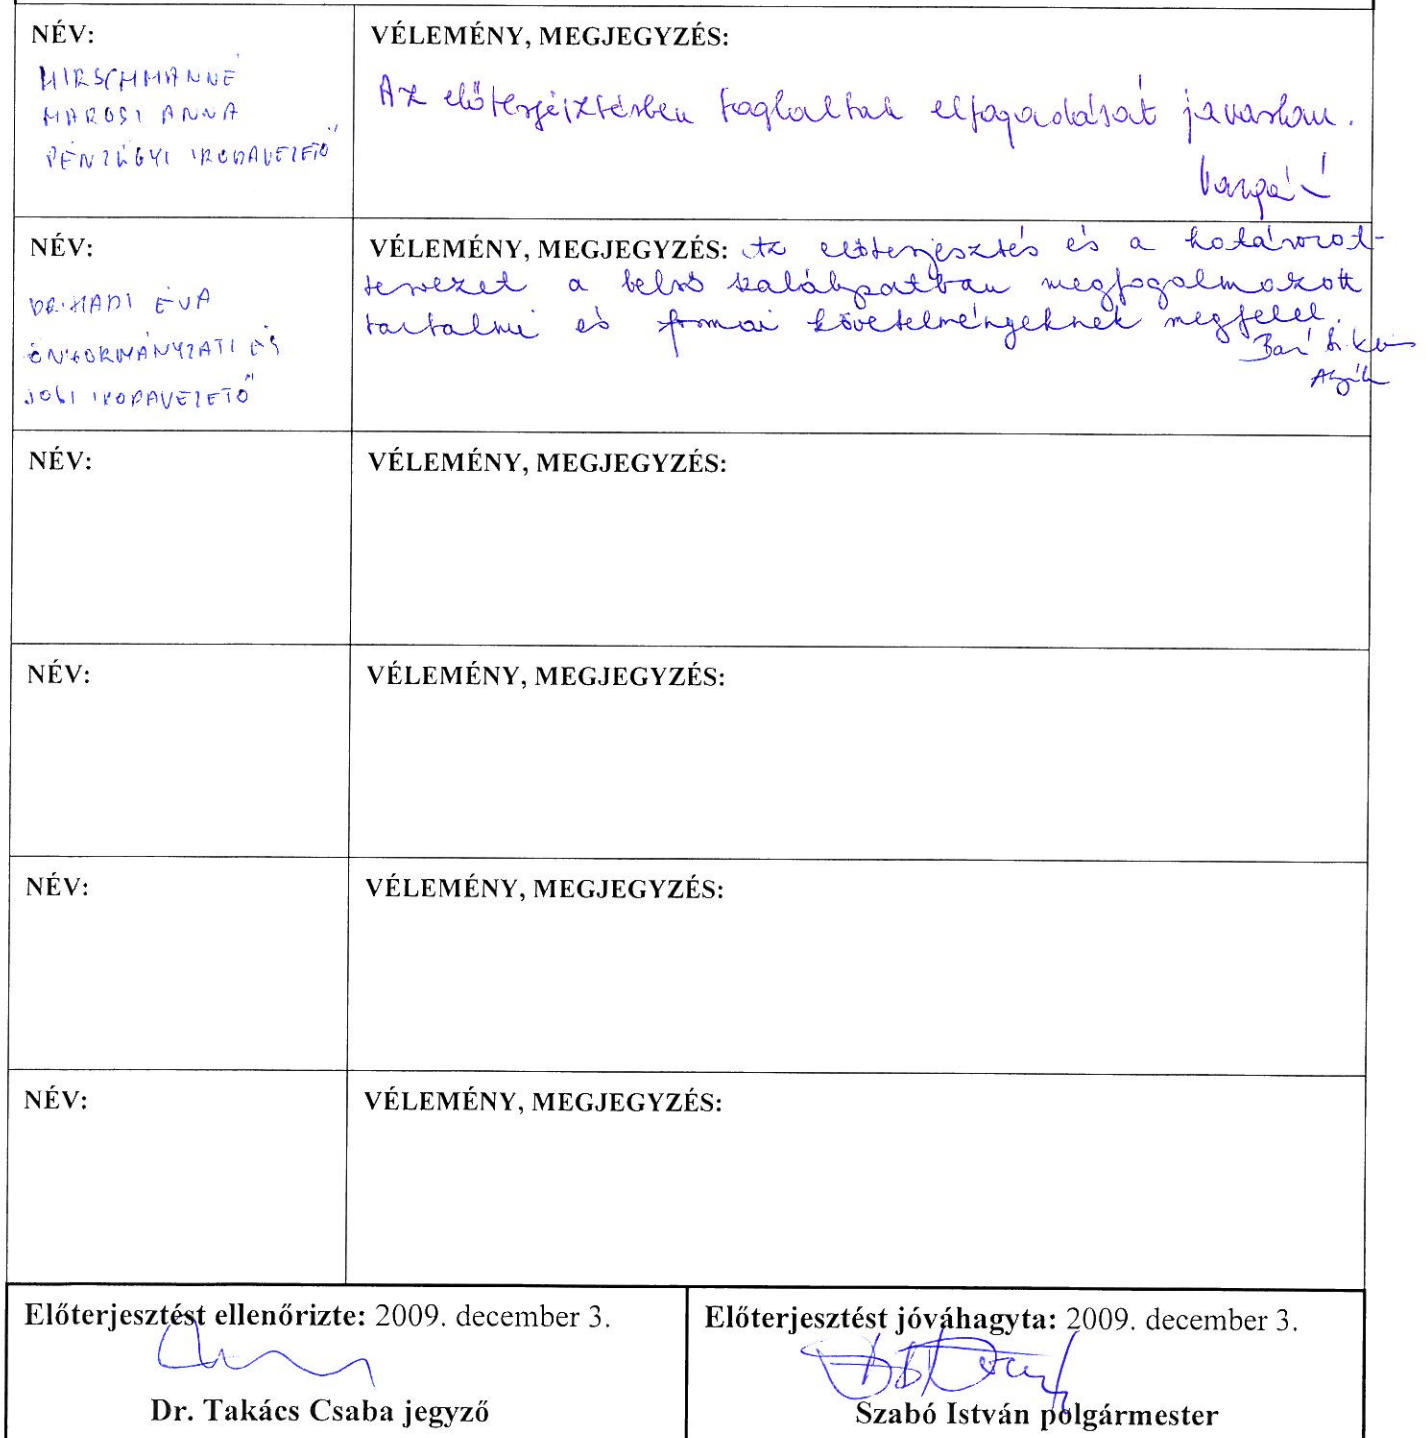 NÉV:
HIRSCHMANNÉ
MAROSI ANNA
PÉNZÜGYI IRODAVEZETŐ
VÉLEMÉNY, MEGJEGYZÉS:
Az előterjesztésben foglaltak elfogadását javaslom.
Vargáné
NÉV:
DR. HADI ÉVA
ÖNKORMÁNYZATI ÉS
JOGI IRODAVEZETŐ
VÉLEMÉNY, MEGJEGYZÉS: Az előterjesztés és a határozat-
tervezet a belső szabályzatban megfogalmazott
tartalmi és formai követelményeknek megfelel.
NÉV:
VÉLEMÉNY, MEGJEGYZÉS:
NÉV:
VÉLEMÉNY, MEGJEGYZÉS:
NÉV:
VÉLEMÉNY, MEGJEGYZÉS:
NÉV:
VÉLEMÉNY, MEGJEGYZÉS:
Előterjesztést ellenőrizte: 2009. december 3.
Dr. Takács Csaba jegyző
Előterjesztést jóváhagyta: 2009. december 3.
Szabó István polgármester